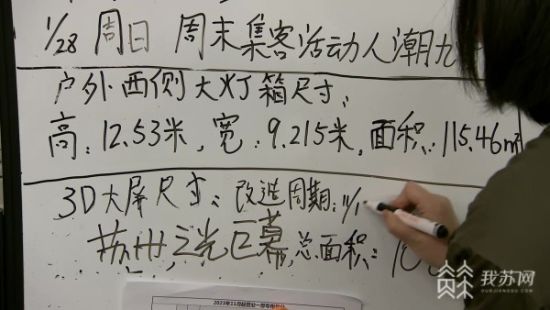 1/28 周日 周末集客活动人潮九
户外西侧大灯箱尺寸:
高:12.53米,宽:9.215米,面积:115.46m²
3D大屏尺寸: 改造周期:11/1
苏州之光巨幕,总面积:10
我苏网